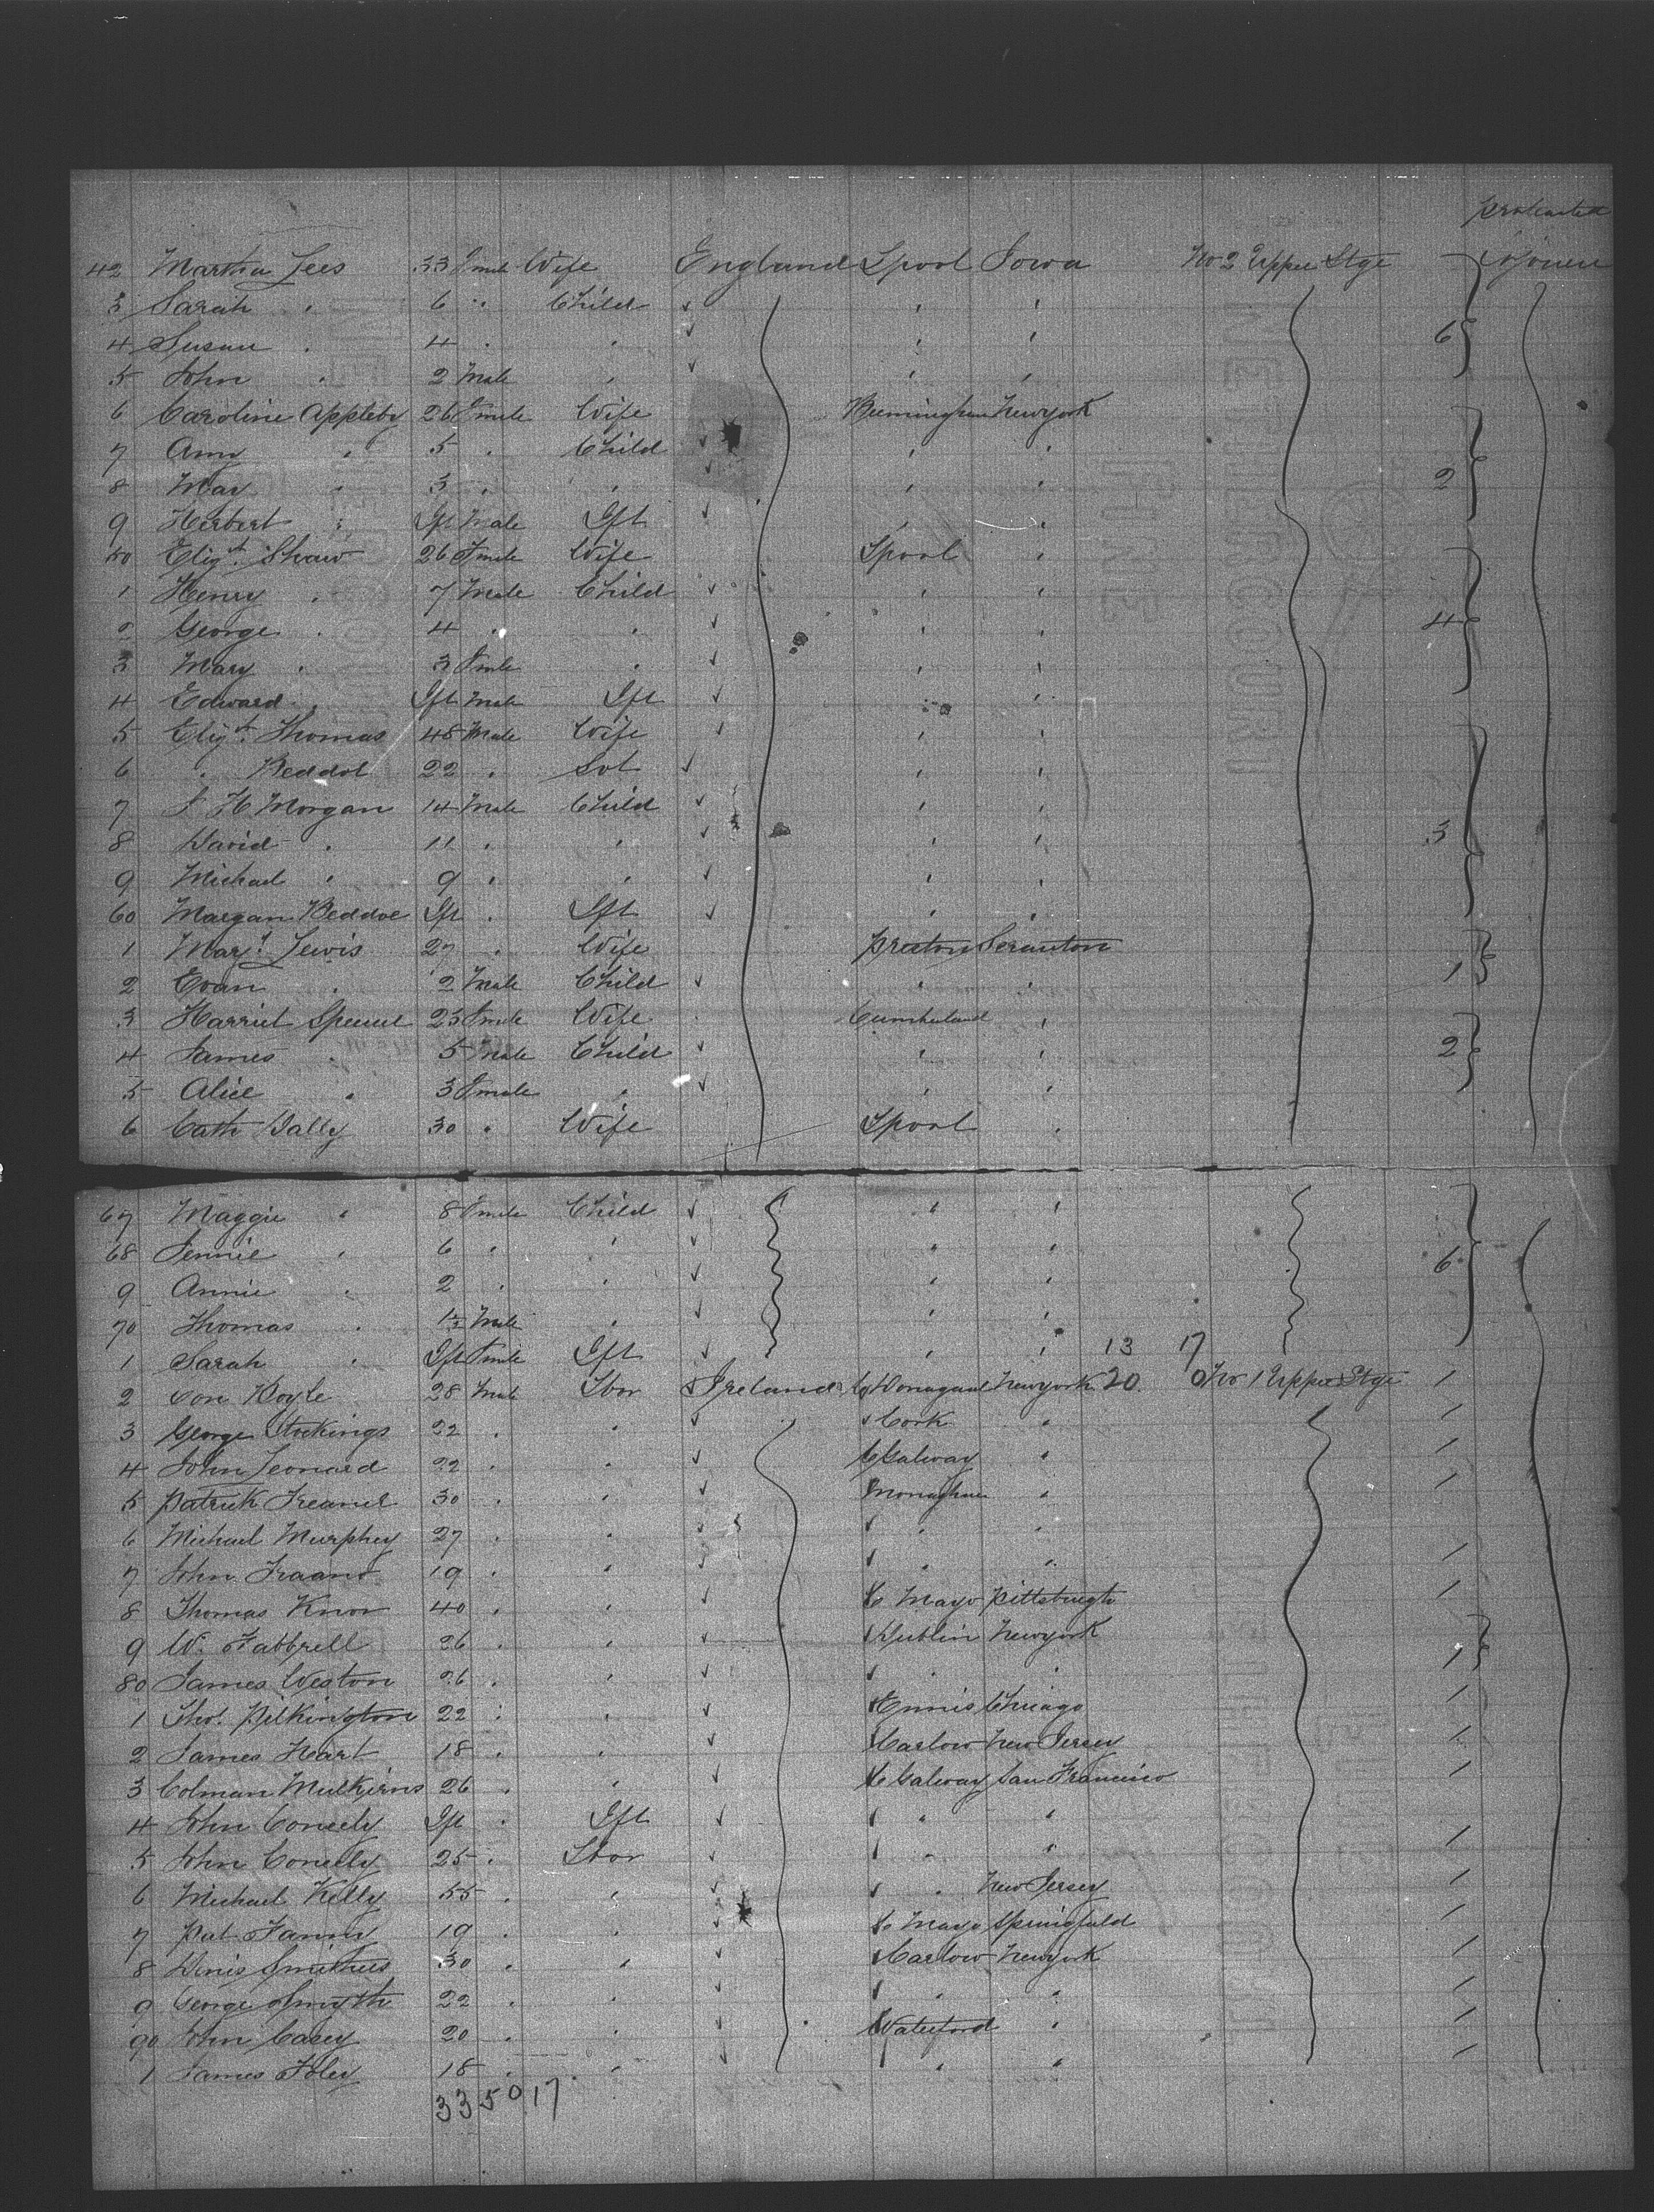 protracted
42 Martha Lees 33 Fmale Wife England Lpool Iowa No 2 Upper Stge Sojourn
3 Sarah " 6 " Child " "
4 Susan " 4 " " " " 6
5 John " 2 Male " " "
6 Caroline Appleby 26 Fmale Wife Birmingham Newyork
7 Amy " 5 " Child " "
8 May " 3 " " " " 2
9 Herbert " Ift Male Ift " "
50 Elizth Shaw 26 Fmale Wife Lpool "
1 Henry " 7 Male Child " "
2 George " 4 " " " " 4
3 Mary " 3 Fmale " " "
4 Edward " Ift Male Ift " "
5 Elizth Thomas 48 Male Wife " "
6 " Beddol 22 " " "
7 J H Morgan 14 Male Child " "
8 David " 11 " " " " 3
9 Michael " 9 " " " "
60 Margan Beddoe Ift " Ift " "
1 Mart Lewis 27 " Wife Preston Scranton
2 Evan " 2 Male Child " " 1
3 Harriet 23 Fmale Wife Cumberland "
4 James " 5 Male Child " " 2
5 Alice " 3 Fmale " " "
6 Cath Bally 30 " Wife Lpool "
67 Maggie " 8 Fmale Child " "
68 Jennie " 6 " " " " 6
9 Annie " 2 " " " "
70 Thomas " Male " " "
1 Sarah " Ift Fmale Ift " " 13 17
2 Con Boyle 28 Male Lbor Ireland Newyork 20 0 No 1 Upper Stge 1
3 George Stockings 22 " " Cork " 1
4 John Leonard 22 " " Co Galway " 1
5 Patrick 30 " " Monaghan " 1
6 Michael Murphey 27 " " " "
7 John 19 " " " " 1
8 Thomas Knox 40 " " Co Mayo Pittsburgh 1
9 W. Fabbrell 26 " " Dublin Newyork
80 James Weston 26 " " " " 1
1 Thos. Pilkington 22 " " Ennis Chicago 1
2 James Hart 18 " " Carlow New Jersey 1
3 Colman Mulkerns 26 " " Co Galway San Francisco 1
4 John Coneely Ift " Ift " "
5 John Conelly 25 " Lbor " " 1
6 Michael Kelly 55 " " " New Jersey 1
7 Pat 19 " " Co Mayo Springfield 1
8 Denis Smithers 30 " " Carlow Newyork 1
9 George Smyth 22 " " " " 1
90 John Casey 20 " " Waterford " 1
1 James Foley 18 " " " " 1
33 50 17